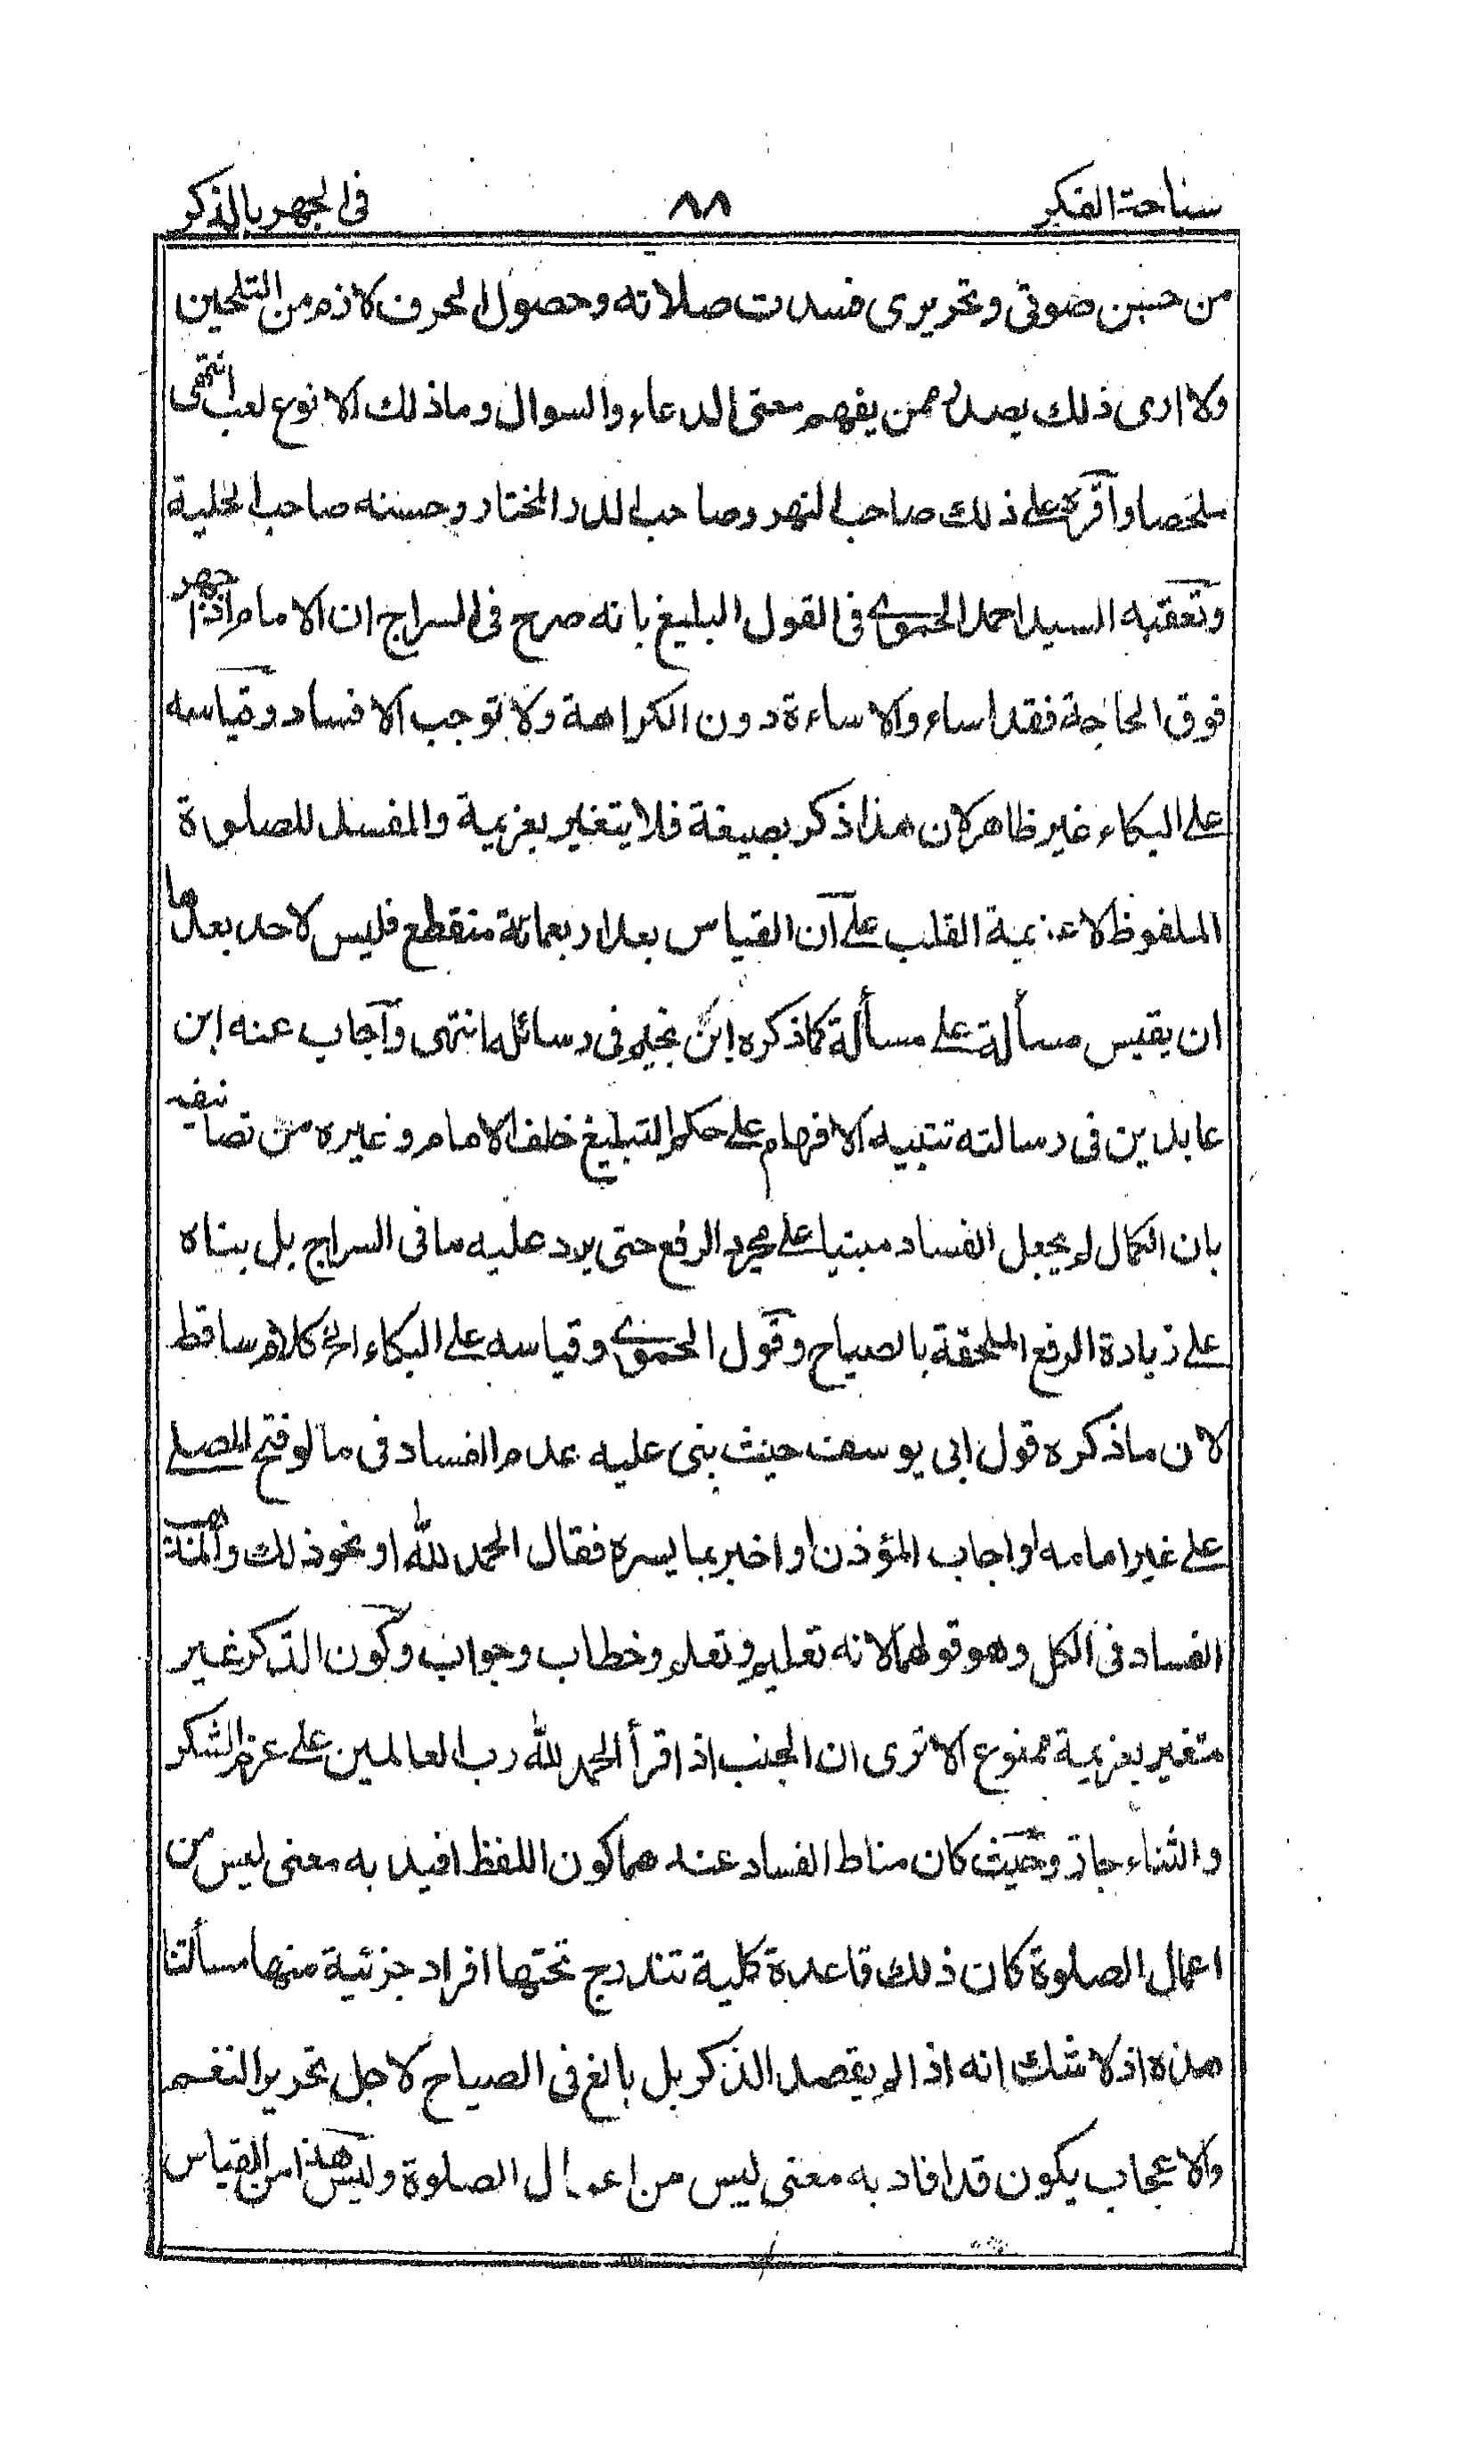 سباحة الفكر ٨٨ فى الجهر بالذكر
من حسن صوتى وتحريرى فسدت صلاته وحصول الحرف لازم من التلحين
ولا ارى ذلك يصدر ممن يفهم معنى الدعاء والسوال وما ذلك الا نوع لعب انتهى
ملخصا واقره على ذلك صاحب النهر وصاحب الدر المختار وحسنه صاحب الحلية
وتعقبه السيد احمد الحموى فى القول البليغ بانه صرح فى السراج ان الامام اذا جهر
فوق الحاجة فقد اساء والاساءة دون الكراهة ولا توجب الافساد وقياسه
على البكاء غير ظاهر لان هذا ذكر بصيغة فلا يتغير بعزيمة والمفسد للصلوة
الملفوظ لا عزيمة القلب على ان القياس بعد اربعمائة منقطع فليس لاحد بعدها
ان يقيس مسألة على مسألة كما ذكره ابن نجيم فى رسائله انتهى واجاب عنه ابن
عابدين فى رسالته تنبيه الافهام على حكم التبليغ خلف الامام وغيره من تصانيفه
بان الكمال لم يجعل الفساد مبنيا على مجرد الرفع حتى يرد عليه ما فى السراج بل بناه
على زيادة الرفع الملحقة بالصياح وقول الحموى وقياسه على البكاء الخ كلام ساقط
لان ما ذكره قول ابى يوسف حيث بنى عليه عدم الفساد فى ما لو فتح المصلى
على غير امامه او اجاب المؤذن او اخبر بما يسره فقال الحمد لله او نحو ذلك والمذهب
الفساد فى الكل وهو قولهما لانه تعليم وتعلم وخطاب وجواب وكون الذكر غير
متغير بعزيمة ممنوع الا ترى ان الجنب اذا قرأ الحمد لله رب العالمين على عزم الشكر
والثناء جاز وحيث كان مناط الفساد عندهما كون اللفظ افيد به معنى ليس من
اعمال الصلوة كان ذلك قاعدة كلية تندرج تحتها افراد جزئية منها مسألتنا
هذه اذ لا شك انه اذا لم يقصد الذكر بل بالغ فى الصياح لاجل تحرير النغم
والاعجاب يكون قد افاد به معنى ليس من اعمال الصلوة وليس هذا من القياس